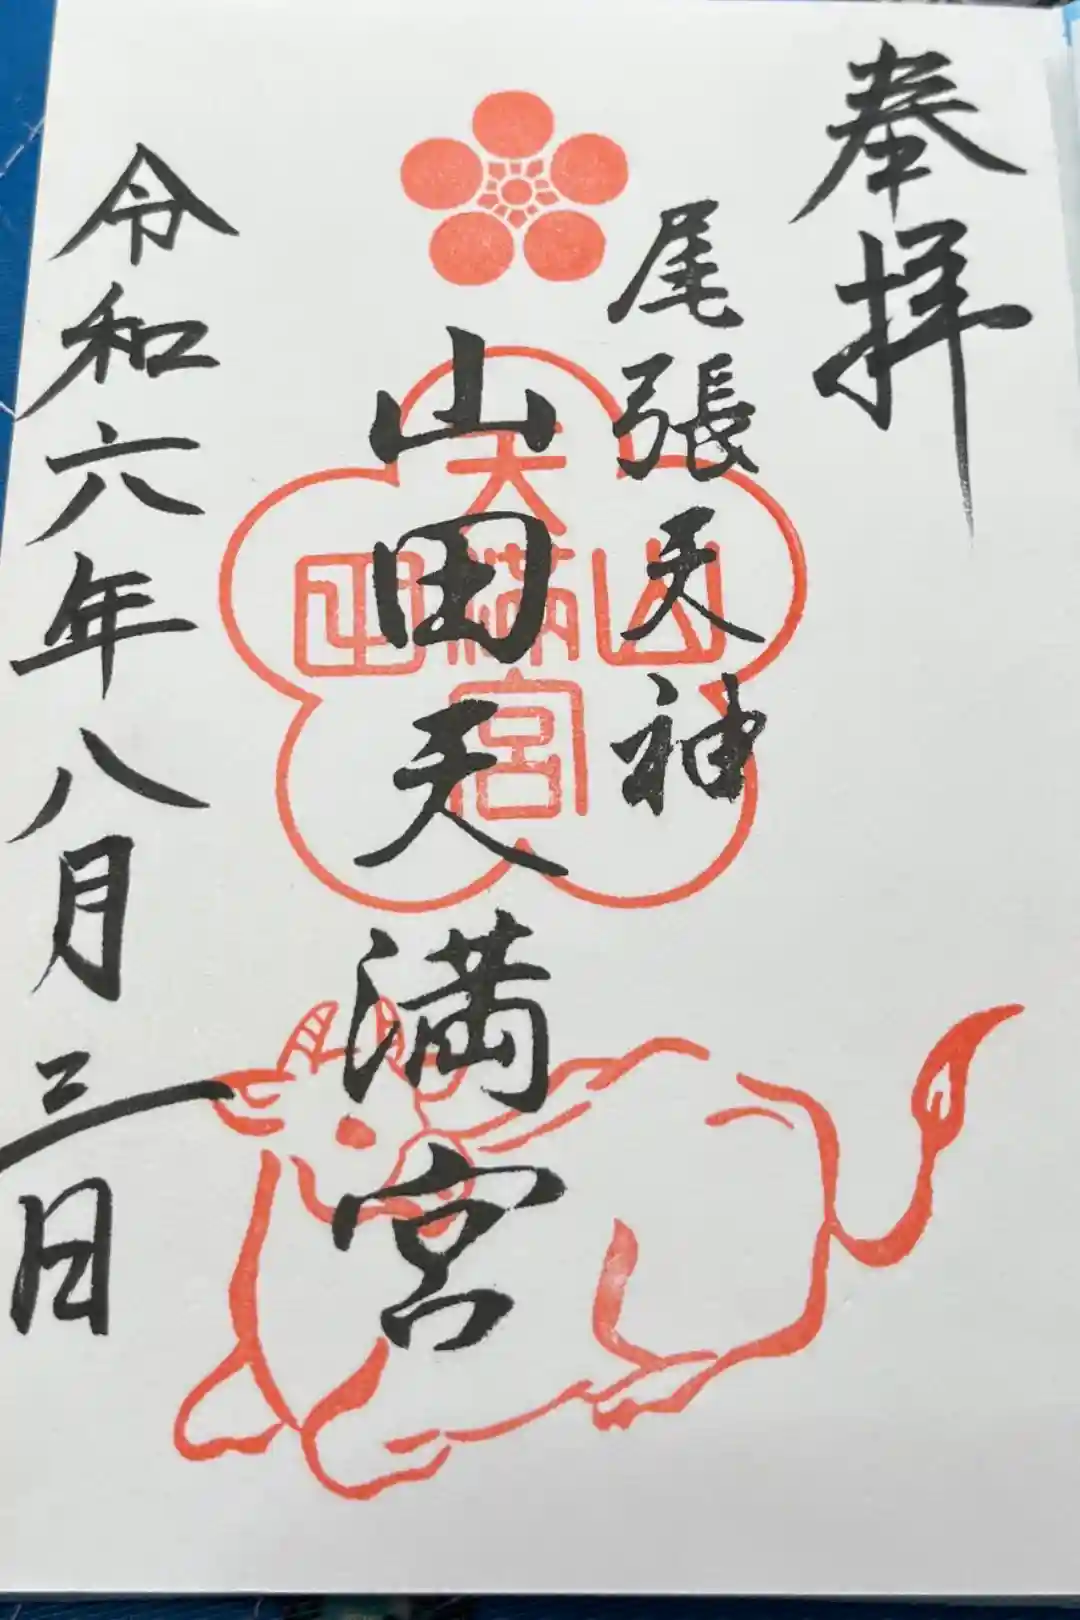 奉拝
尾張天神
山田天満宮
令和六年八月三日
山田
天満宮